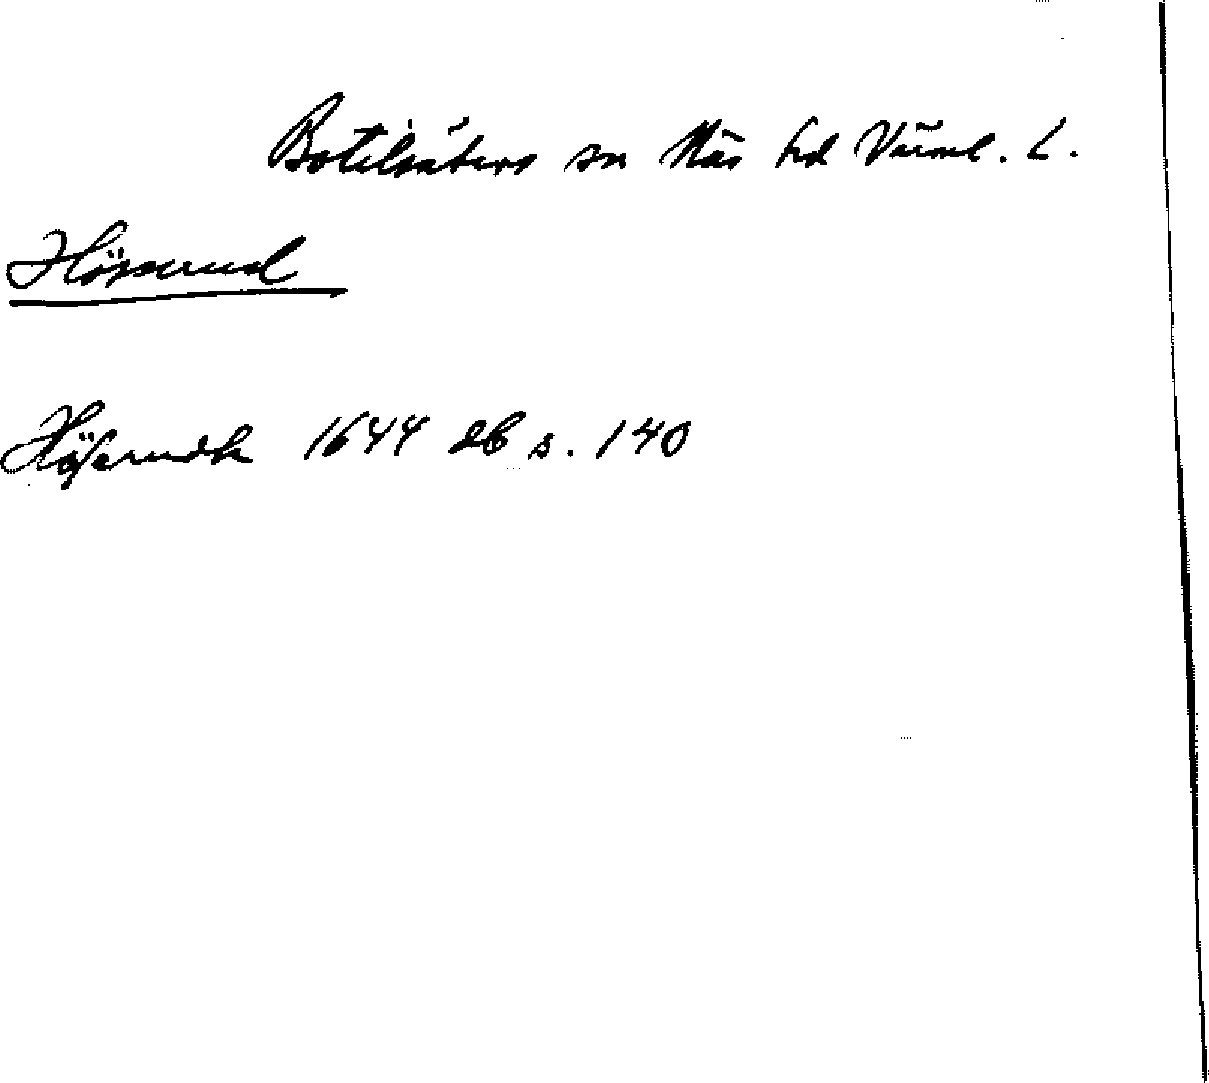 Botilsäters sn Näs hd Värml. L.
Hösserud
1644 db s. 140